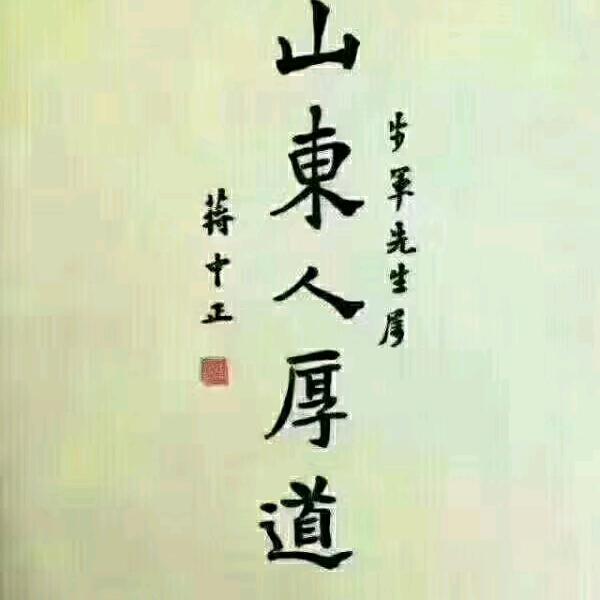 步軍先生属
山東人厚道
蔣中正